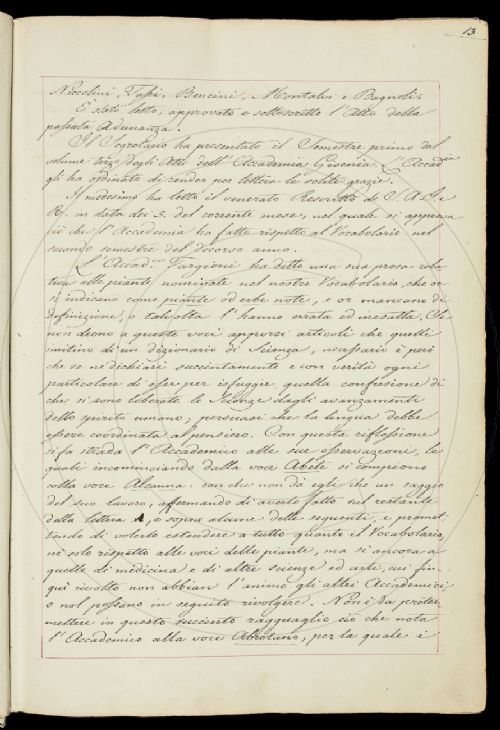 13
Niccolini, Tassi, Bencini, Montalvi e Bagnoli.
È stato letto, approvato e sottoscritto l'Atto della
passata Adunanza.
Il Segretario ha presentato il Semestre primo del
volume terzo degli Atti dell'Accademia Gioenia. L'Accadia
gli ha ordinato di render per lettera le solite grazie.
Il medesimo ha letto il venerato Rescritto di S. A. I. e
R. in data dei 5. del corrente mese, nel quale si approva
ciò che l'Accademia ha fatto rispetto al Vocabolario nel
secondo semestre del decorso anno.
L'Accad.co Targioni ha detto una sua prosa rela
tiva alle piante nominate nel nostro Vocabolario, che or
si indicano come piante ed erbe note, e or mancano di
definizione, o talvolta l'hanno errata ed inesatta. Che
non deono a queste voci apporsi articoli che quelli
imitino di un dizionario di Scienza, necessario è però
che se ne dichiari succintamente e con verità ogni
particolare di esse per isfuggire quella confusione di
che si sono liberate le scienze dagli avanzamenti
dello spirito umano; persuasi che la lingua debbe
essere coordinata al pensiero. Con questa riflessione
si fa strada l'Accademico alle sue osservazioni, le
quali incominciando dalla voce Abete si compiono
colla voce Alcanna: con che non dà egli che un saggio
del suo lavoro, affermando di averlo fatto nel restante
della lettera A, e sopra alcune delle seguenti, e promet-
tendo di volerlo estendere a tutto quanto il Vocabolario,
nè solo rispetto alle voci delle piante, ma sì ancora a
quelle di medicina e di altre scienze ed arti, cui fin-
qui rivolto non abbian l'animo gli altri Accademici
o nol possano in seguito rivolgere. Non è da preter-
mettere in questo succinto ragguaglio ciò che nota
l'Accademico alla voce Abrotano, per la quale i